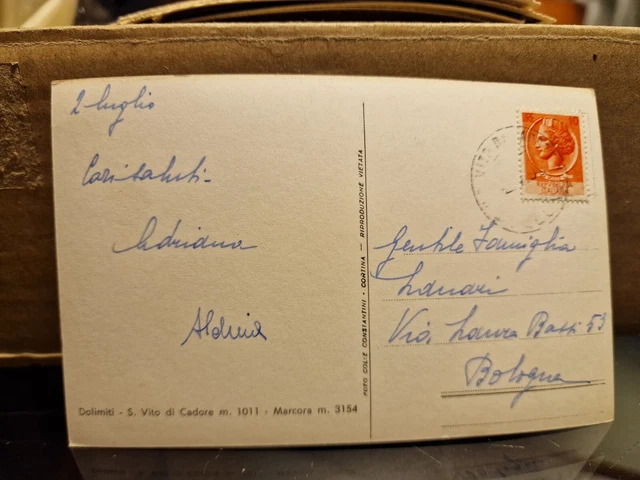 2 luglio
Cari saluti -
Adriana
Alduina
Dolimiti - S. Vito di Cadore m. 1011 - Marcora m. 3154
FOTO COL: E CONSTANTINI - CORTINA - RIPRODUZIONE VIETATA
Gentile Famiglia
Lanari
Via Laura Bassi 53
Bologna